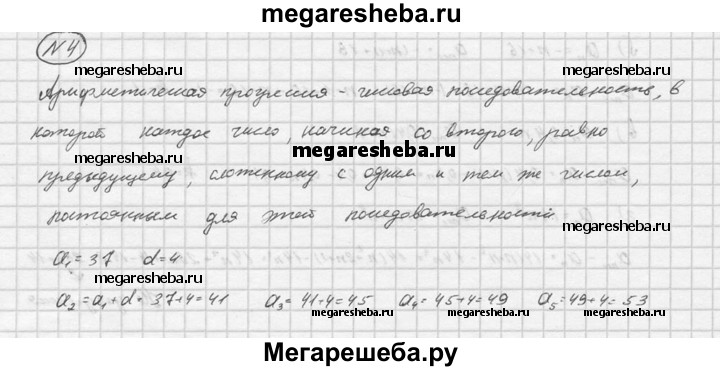 megaresheba.ru
N4
megaresheba.ru megaresheba.ru
Арифметическая прогрессия - числовая последовательность, в
которой каждое число, начиная со второго, равно
megaresheba.ru
предыдущему, сложенному с одним и тем же числом,
постоянным для этой последовательности
a₁=37 d=4
megaresheba.ru
a₂=a₁+d=37+4=41 a₃=41+4=45 a₄=45+4=49 a₅=49+4=53
megaresheba.ru megaresheba.ru
Мегарешеба.ру